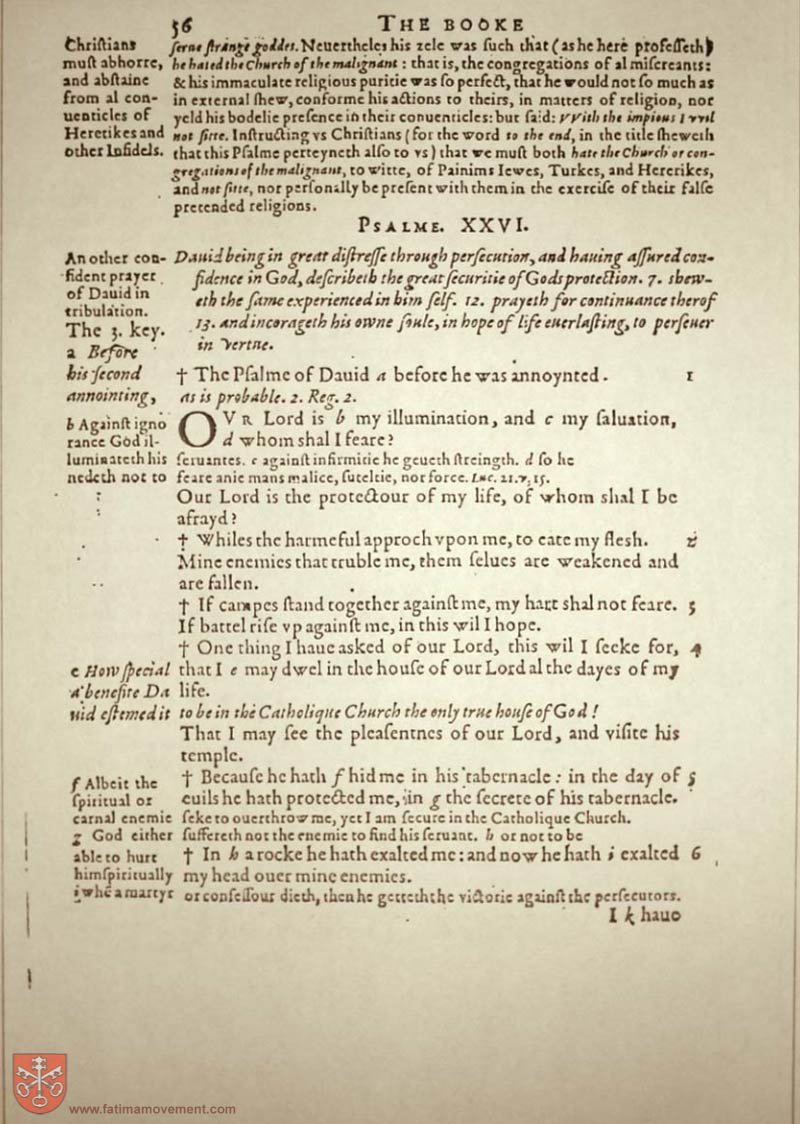 56 THE BOOKE
Chriſtians
muſt abhorre,
and abſtaine
from al con-
uenticles of
Heretikes and
other Infidels.
ſerue ſtrange goddes. Neuertheles his zele was ſuch that (as he here profeſſeth)
he hated the Church of the malignant : that is, the congregations of al miſcreants:
& his immaculate religious puritie was ſo perfect, that he would not ſo much as
in external ſhew, conforme his actions to theirs, in matters of religion, nor
yeld his bodelie preſence in their conuenticles: but ſaid: VVith the impious I vvil
not ſitte. Inſtructing vs Chriſtians (for the word to the end, in the title ſheweth
that this Pſalme perteyneth alſo to vs) that we muſt both hate the Church or con-
gregations of the malignant, to witte, of Painims Iewes, Turkes, and Heretikes,
and not ſitte, nor perſonally be preſent with them in the exerciſe of their falſe
pretended religions.
PSALME. XXVI.
An other con-
fident prayer
of Dauid in
tribulation.
The 3. key.
Dauid being in great diſtreſſe through perſecution, and hauing aſſured con-
fidence in God, deſcribeth the great ſecuritie of Gods protection. 7. ſhew-
eth the ſame experienced in him ſelf. 12. prayeth for continuance therof
13. and incorageth his owne ſoule, in hope of life euerlaſting, to perſeuer
in vertue.
a Before
his ſecond
annointing,
† The Pſalme of Dauid a before he was annoynted. 1
as is probable. 2. Reg. 2.
b Againſt igno
rance God il-
luminateth his
OVR Lord is b my illumination, and c my ſaluation,
d whom shal I feare?
ſeruantes. c againſt infirmitie he geueth ſtreingth. d ſo he
nedeth not to feare anie mans malice, ſuteltie, nor force. Luc. 21. v. 15.
Our Lord is the protectour of my life, of whom shal I be
afrayd?
† Whiles the harmeful approch vpon me, to eate my flesh. 2
Mine enemies that truble me, them ſelues are weakened and
are fallen.
† If campes ſtand together againſt me, my hart shal not feare. 3
If battel riſe vp againſt me, in this wil I hope.
† One thing I haue asked of our Lord, this wil I ſeeke for, 4
that I e may dwel in the houſe of our Lord al the dayes of my
life.
e How ſpecial
a benefite Da
uid eſtemed it to be in the Catholique Church the only true houſe of God !
That I may ſee the pleaſentnes of our Lord, and viſite his
temple.
† Becauſe he hath f hid me in his tabernacle: in the day of 5
euils he hath protected me, in g the ſecrete of his tabernacle.
f Albeit the
ſpiritual or
carnal enemie ſeke to ouerthrow me, yet I am ſecure in the Catholique Church.
g God either ſuffereth not the enemie to find his ſeruant. h or not to be
able to hurt
him ſpiritually
† In h a rocke he hath exalted me: and now he hath i exalted 6
my head ouer mine enemies.
i whē a martyr or confeſſour dieth, then he getteth the victorie againſt the perſecutors.
I k haue
www.fatimamovement.com